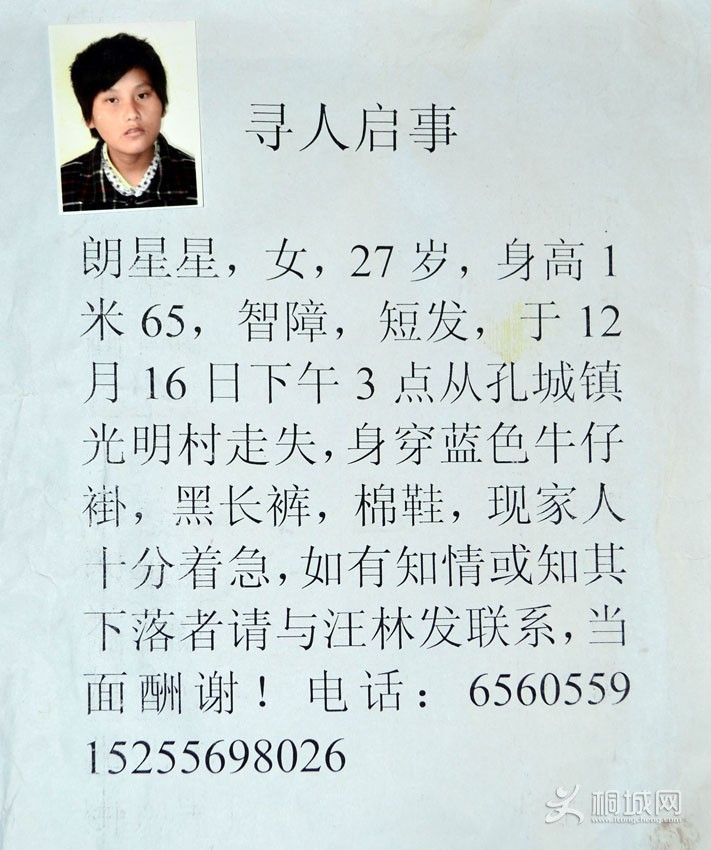 寻人启事
朗星星，女，27岁，身高1
米65，智障，短发，于12
月16日下午3点从孔城镇
光明村走失，身穿蓝色牛仔
褂，黑长裤，棉鞋，现家人
十分着急，如有知情或知其
下落者请与汪林发联系，当
面酬谢！电话：6560559
15255698026
桐城网
www.itongcheng.com